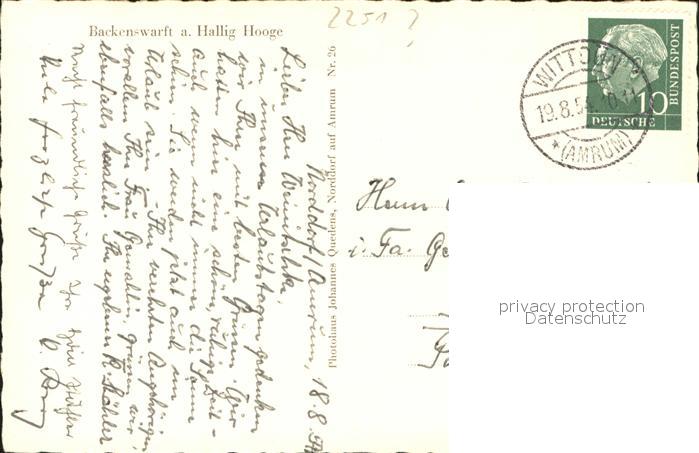 2251 ?
Backenswarft a. Hallig Hooge
WITTDÜN
19.8.54.10-11
(AMRUM)
10
DEUTSCHE
BUNDESPOST
Photohaus Johannes Quedens, Norddorf auf Amrum Nr. 26
Norddorf/Amrum, 18.8.54
Lieber Herr
in unseren Urlaubstagen gedenken
wir Ihrer mit besten Grüssen. Wir
hatten hier eine schöne, ruhige Zeit -
auch wenn nicht immer die Sonne
schien. Sie werden jetzt auch im
Urlaub sein. - Ihre verehrten Angehörigen,
vor allem Ihre Frau Gemahlin, grüssen wir
ebenfalls herzlich. Ihr ergebener
Recht freundliche Grüße Ihr
Viele herzliche Grüße
Herrn
i. Fa. Ge
privacy protection
Datenschutz